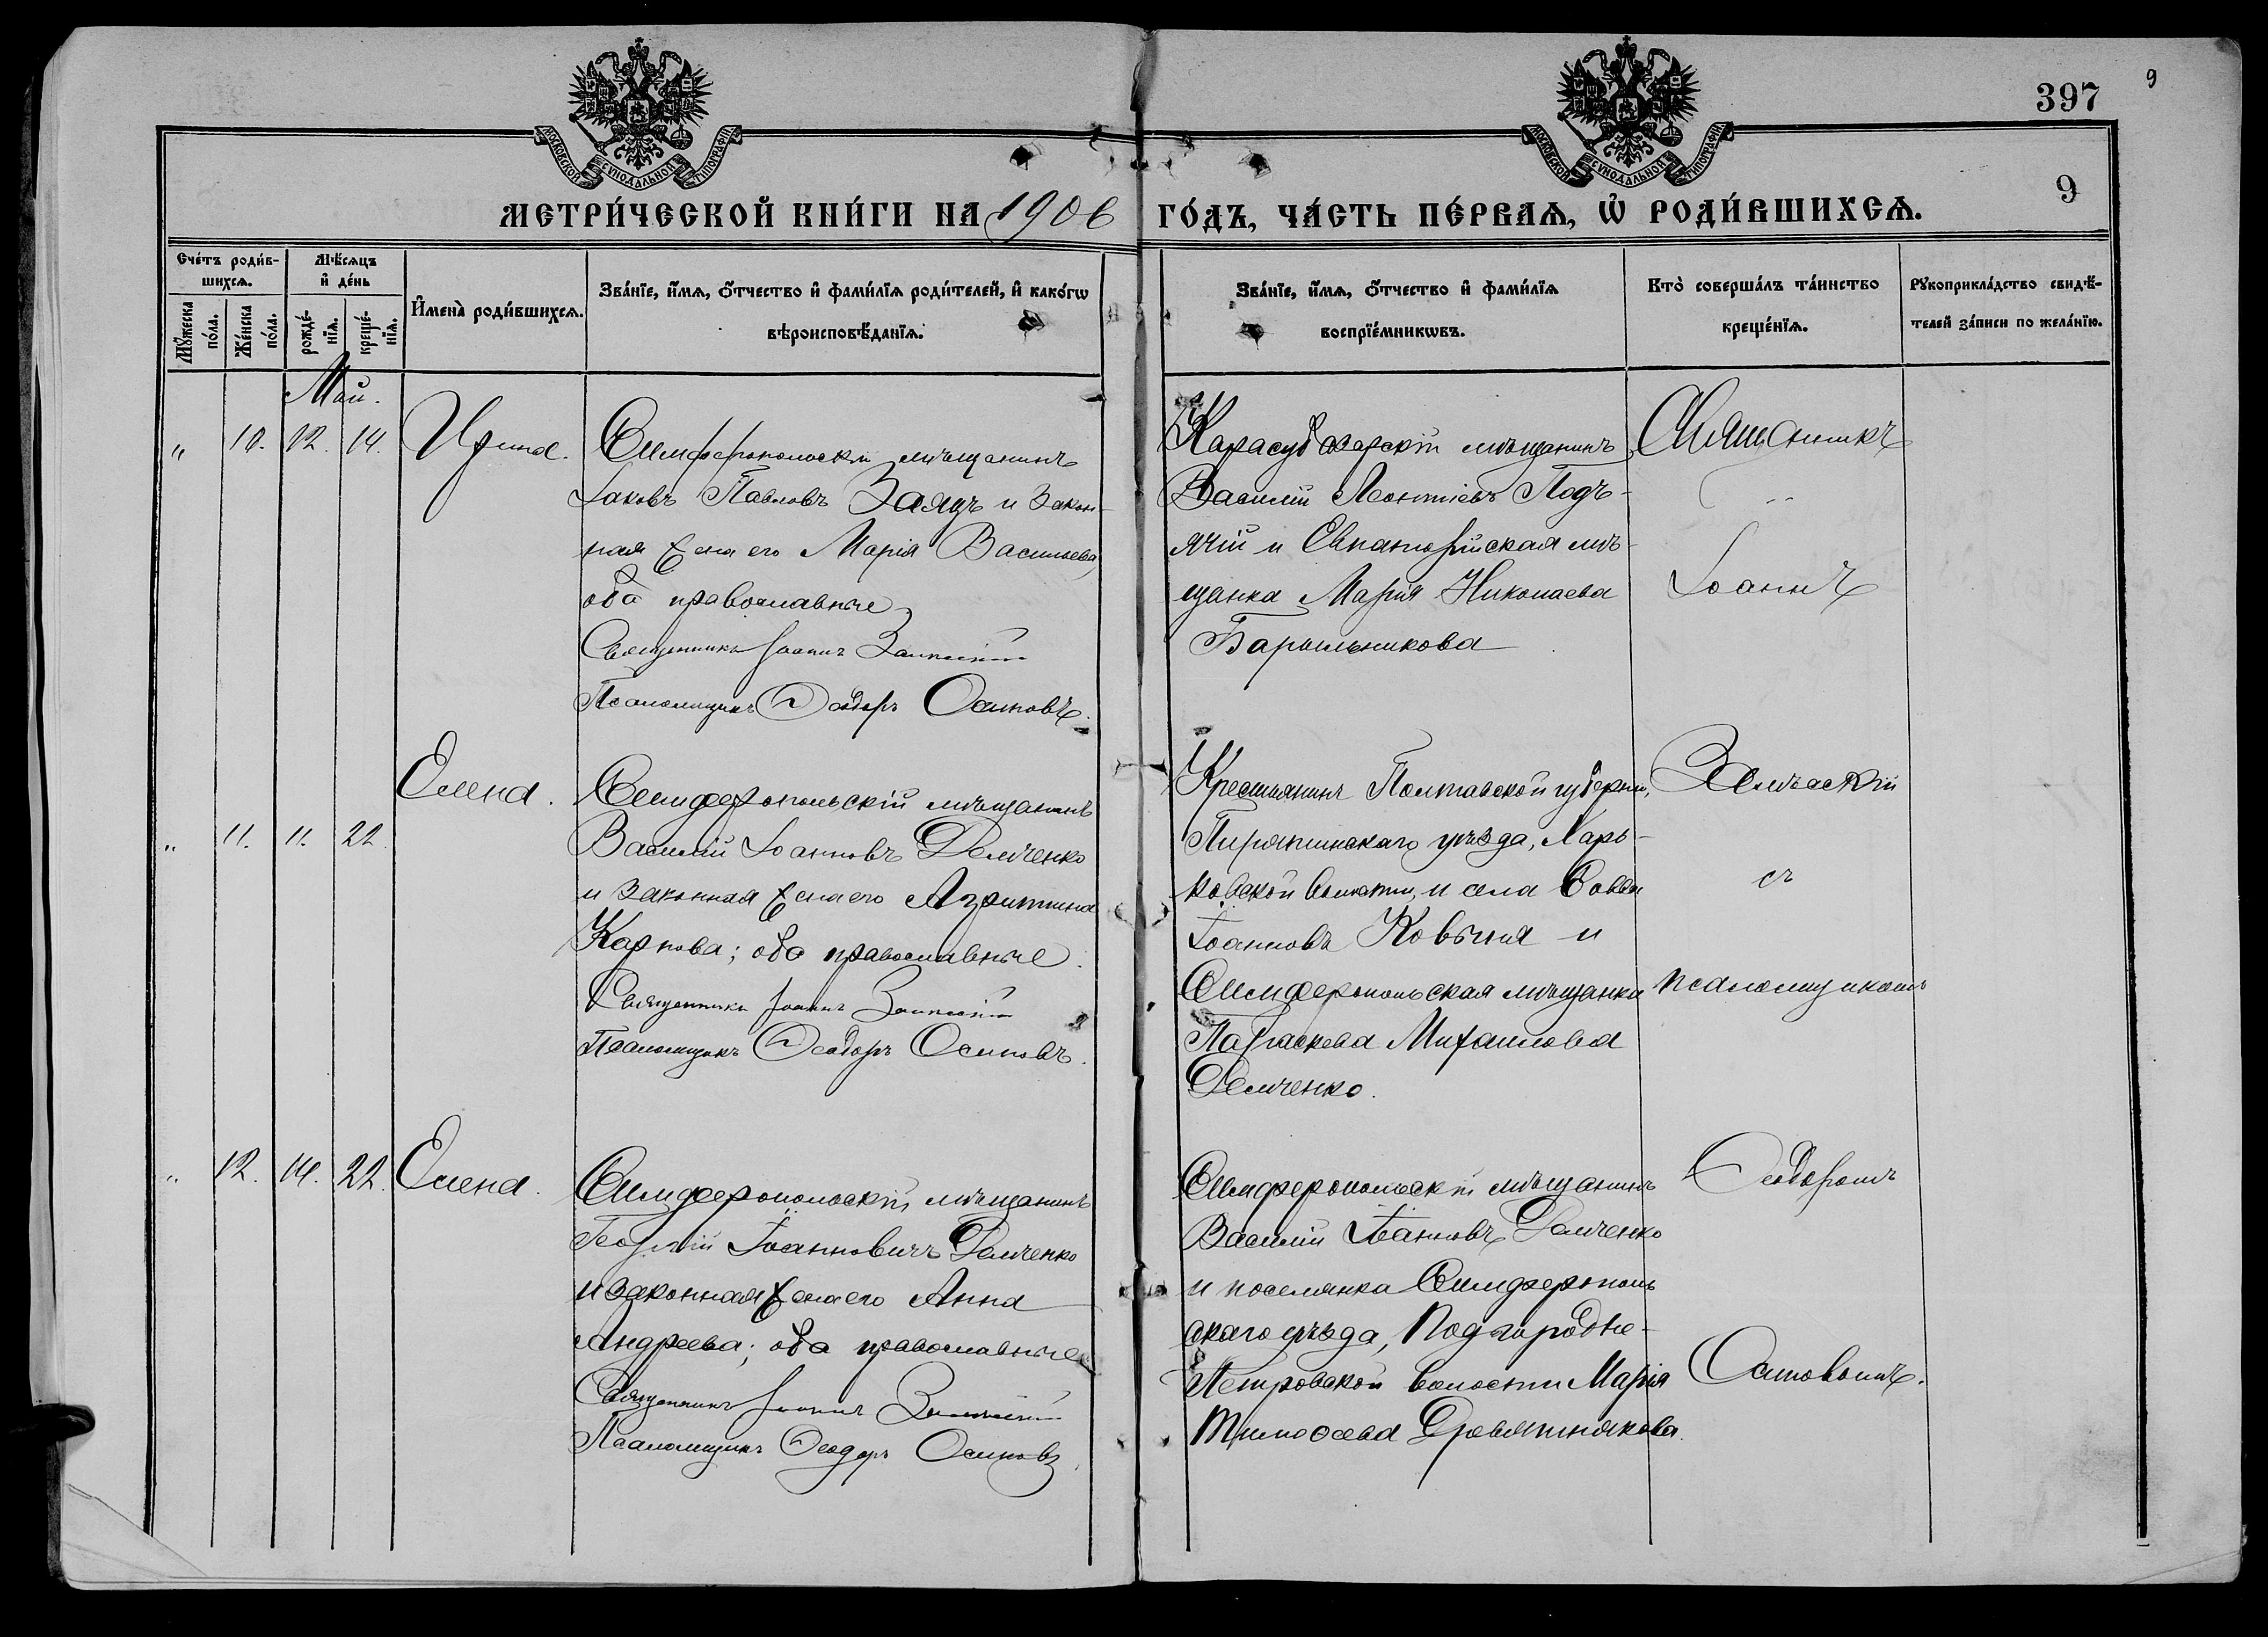 397
9
9
МОСКОВСКОЙ СѴНОДАЛЬНОЙ ТИПОГРАФІИ
МОСКОВСКОЙ СѴНОДАЛЬНОЙ ТИПОГРАФІИ
МЕТРИ́ЧЕСКОЙ КНИ́ГИ НА 1906 ГО́ДЪ, ЧА́СТЬ ПЕ́РВАѦ, Ѡ҆ РОДИ́ВШИХСѦ.
Сче́тъ роди́в-
шихсѧ.
Мꙋ́жеска по́ла.
Же́нска по́ла.
Мѣ́сѧцъ
и҆ де́нь
рожде́-нїѧ.
креще́-нїѧ.
И҆мена̀ роди́вшихсѧ.
Зва́нїе, и҆́мѧ, ѻ҆́тчество и҆ фами́лїѧ роди́телей, и҆ како́гѡ
вѣроисповѣ́данїѧ.
Зва́нїе, и҆́мѧ, ѻ҆́тчество и҆ фами́лїѧ
воспрїе́мникѡвъ.
Кто̀ соверша́лъ та́инство
креще́нїѧ.
Рꙋкоприкла́дство свидѣ́-
телей за́писи по жела́нїю.
Май.
" 10. 12. 14. Ирина.
Симферопольскій мѣщанинъ
Іаковъ Павловъ Заяцъ и закон-
ная жена его Марія Васильева,
оба православные
Священникъ Іоаннъ
Псаломщикъ Ѳеодоръ Осиповъ.
Карасубазарскій мѣщанинъ
Василій Леонтіевъ Подъ-
ячій и Евпаторійская мѣ-
щанка Марія Николаева
Барыльникова
Священникъ
Іоаннъ
Елена.
" 11. 11. 22
Симферопольскій мѣщанинъ
Василій Іоанновъ Демченко
и законная жена его Агриппина
Карпова; оба православные.
Священникъ Іоаннъ
Псаломщикъ Ѳеодоръ Осиповъ.
Крестьянинъ Полтавской губерніи,
Пирятинскаго уѣзда, Харь-
ковской волости, и села Савва
Іоанновъ и
Симферопольская мѣщанка
Параскева Михаилова
Демченко.
съ
псаломщикомъ
" 12. 14. 22. Елена.
Симферопольскій мѣщанинъ
Георгій Іоанновичъ Демченко
и законная жена его Анна
Андреева; оба православные
Священникъ Іоаннъ
Псаломщикъ Ѳеодоръ Осиповъ
Симферопольскій мѣщанинъ
Василій Іоанновъ Демченко
и поселянка Симферополь
скаго уѣзда, Подгородне-
Петровской волости Марія
Тимоѳеева Древятнякова.
Ѳеодоромъ
Осиповымъ.